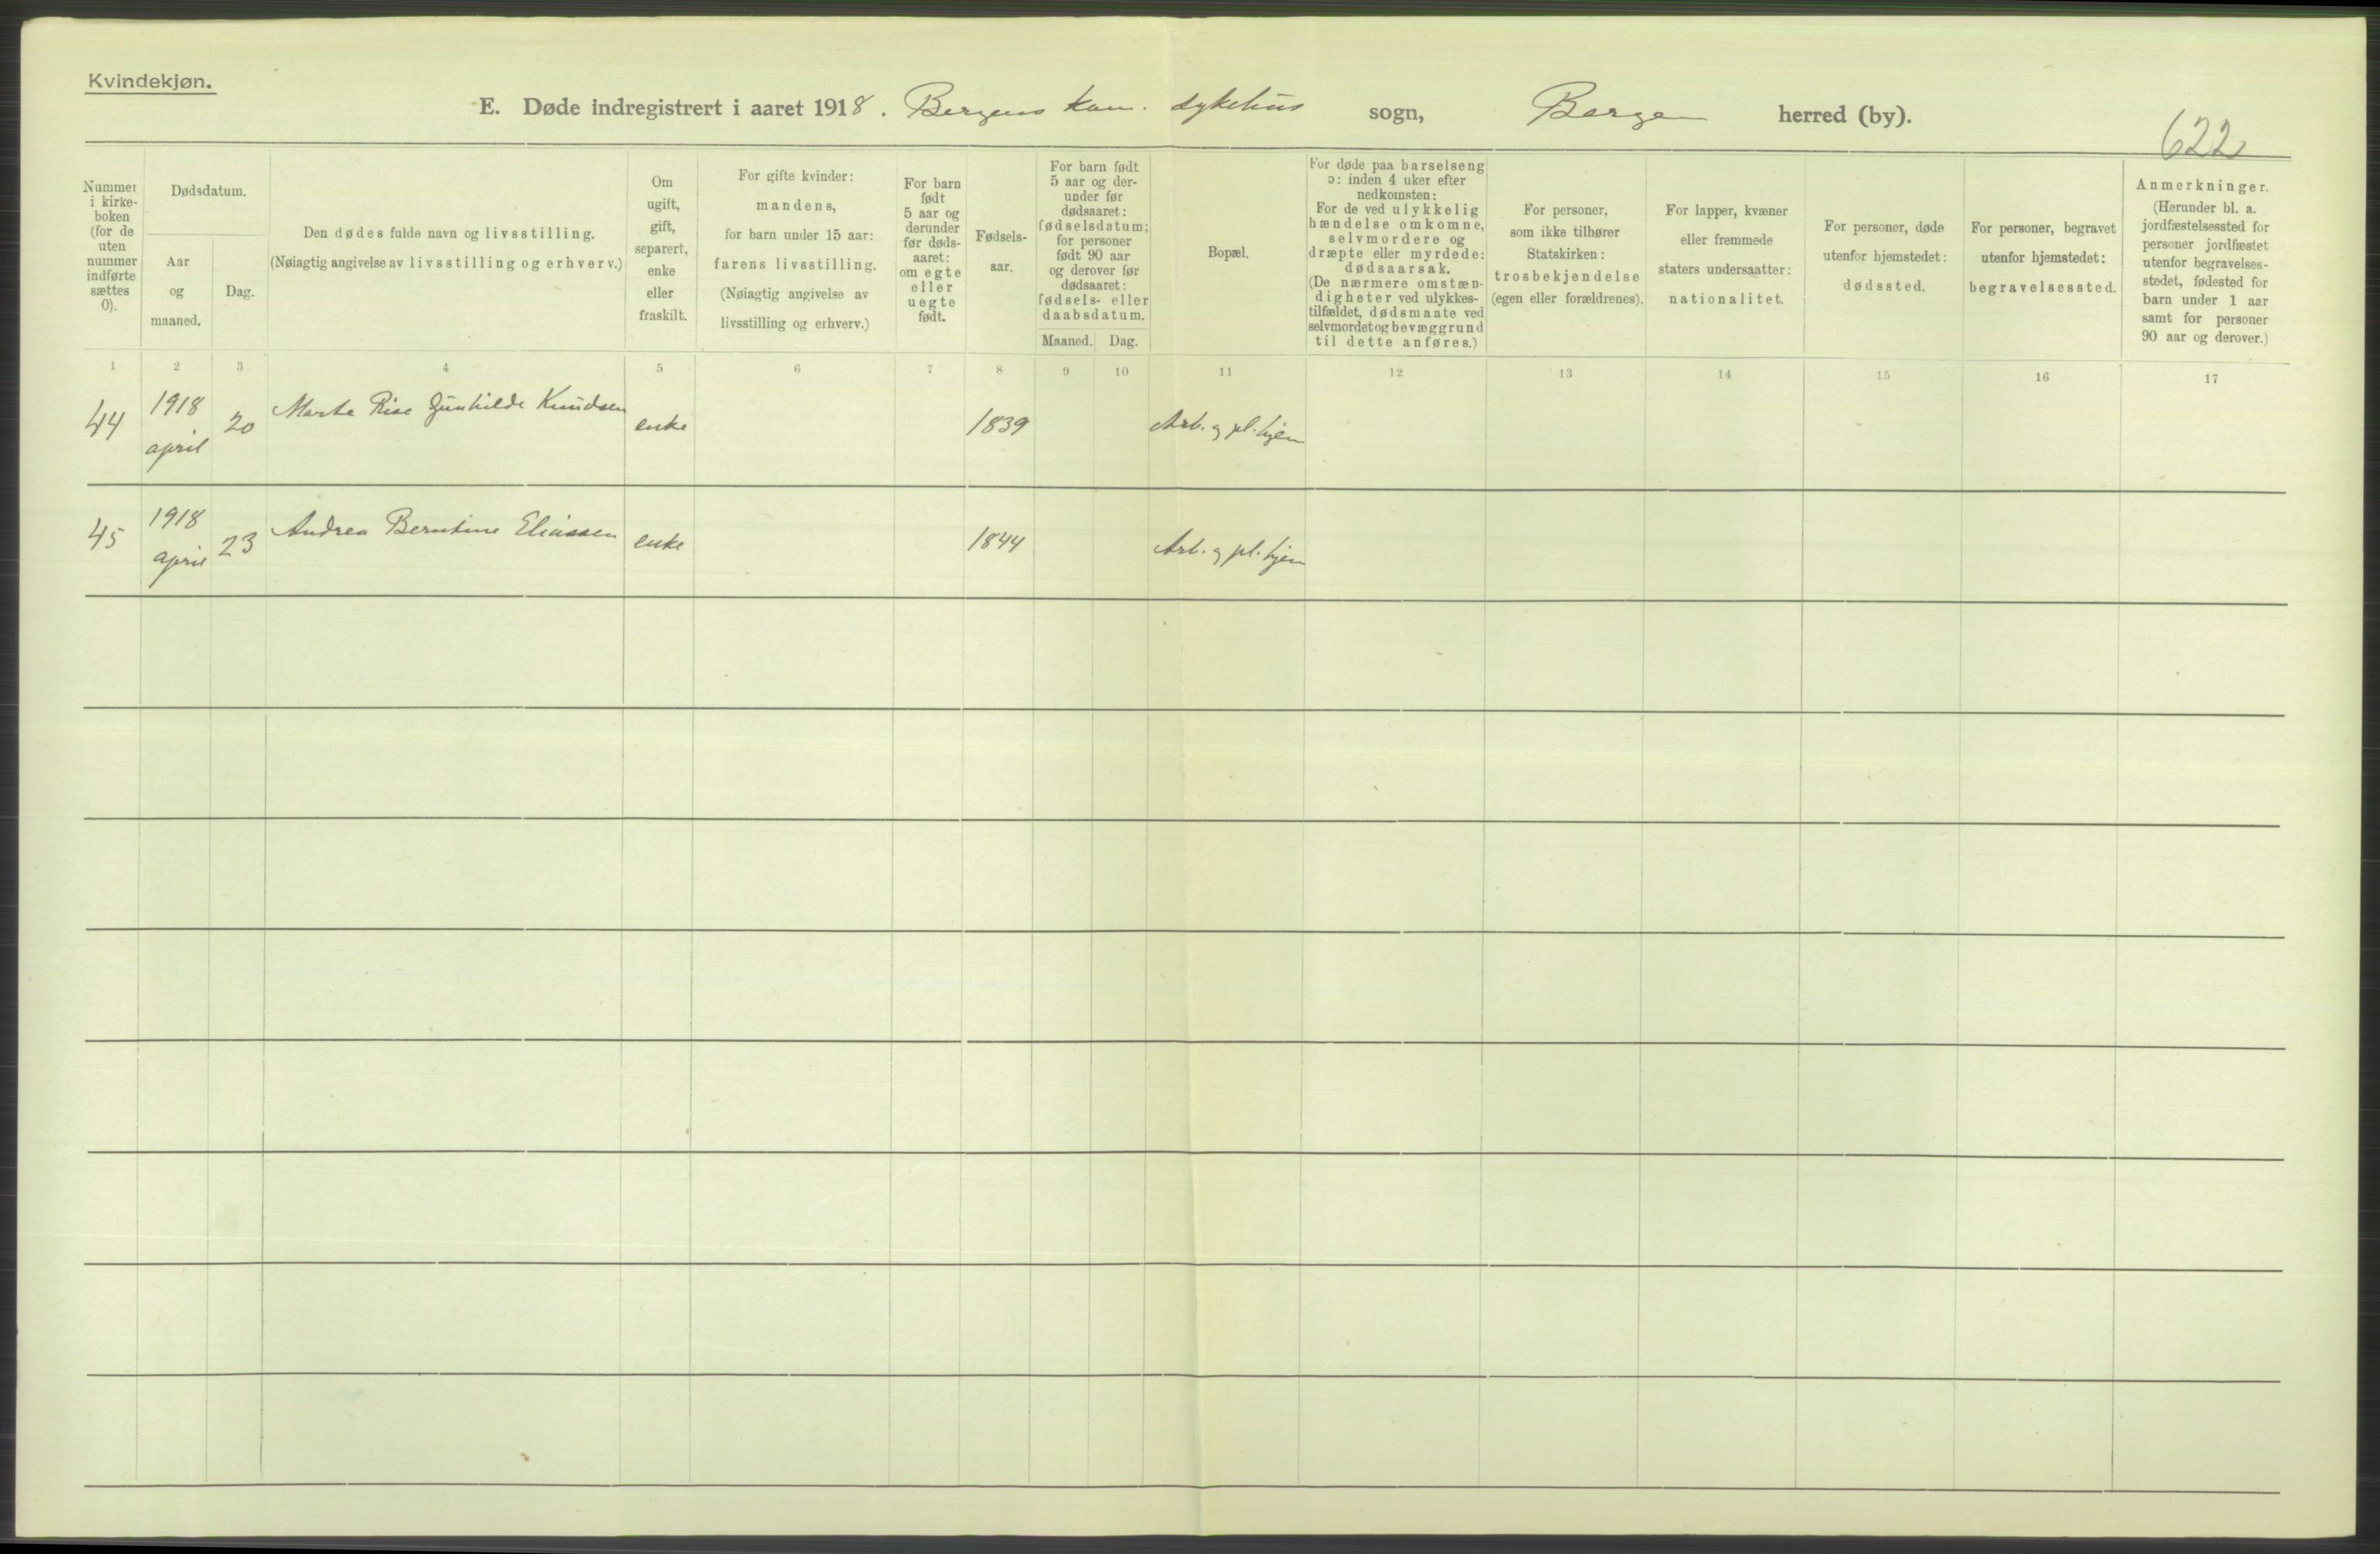 Kvindekjøn.
E. Døde indregistrert i aaret 1918. Bergens kom. sykehus sogn, Bergen herred (by).
622
Nummer
i kirke-
boken
(for de
uten
nummer
indførte
sættes
0).
Dødsdatum.
Aar
og
maaned.
Dag.
Den dødes fulde navn og livsstilling.
(Nøiagtig angivelse av livsstilling og erhverv.)
Om
ugift,
gift,
separert,
enke
eller
fraskilt.
For gifte kvinder:
mandens,
for barn under 15 aar:
farens livsstilling.
(Nøiagtig angivelse av
livsstilling og erhverv.)
For barn
født
5 aar og
derunder
før døds-
aaret:
om egte
eller
uegte
født.
Fødsels-
aar.
For barn født
5 aar og der-
under før
dødsaaret:
fødselsdatum;
for personer
født 90 aar
og derover før
dødsaaret:
fødsels- eller
daabsdatum.
Maaned. Dag.
Bopæl.
For døde paa barselseng
ɔ: inden 4 uker efter
nedkomsten:
For de ved ulykkelig
hændelse omkomne,
selvmordere og
dræpte eller myrdede:
dødsaarsak.
(De nærmere omstæn-
digheter ved ulykkes-
tilfældet, dødsmaate ved
selvmordet og bevæggrund
til dette anføres.)
For personer,
som ikke tilhører
Statskirken:
trosbekjendelse
(egen eller forældrenes).
For lapper, kvæner
eller fremmede
staters undersaatter:
nationalitet.
For personer, døde
utenfor hjemstedet:
dødssted.
For personer, begravet
utenfor hjemstedet:
begravelsessted.
Anmerkninger.
(Herunder bl. a.
jordfæstelsessted for
personer jordfæstet
utenfor begravelses-
stedet, fødested for
barn under 1 aar
samt for personer
90 aar og derover.)
1 2 3 4 5 6 7 8 9 10 11 12 13 14 15 16 17
44 1918 april 20 Marta Rise Gunhilde Knudsen enke 1839 Arb. og pl. hjem
45 1918 april 23 Andrea Berntine Eliassen enke 1844 Arb. og pl. hjem